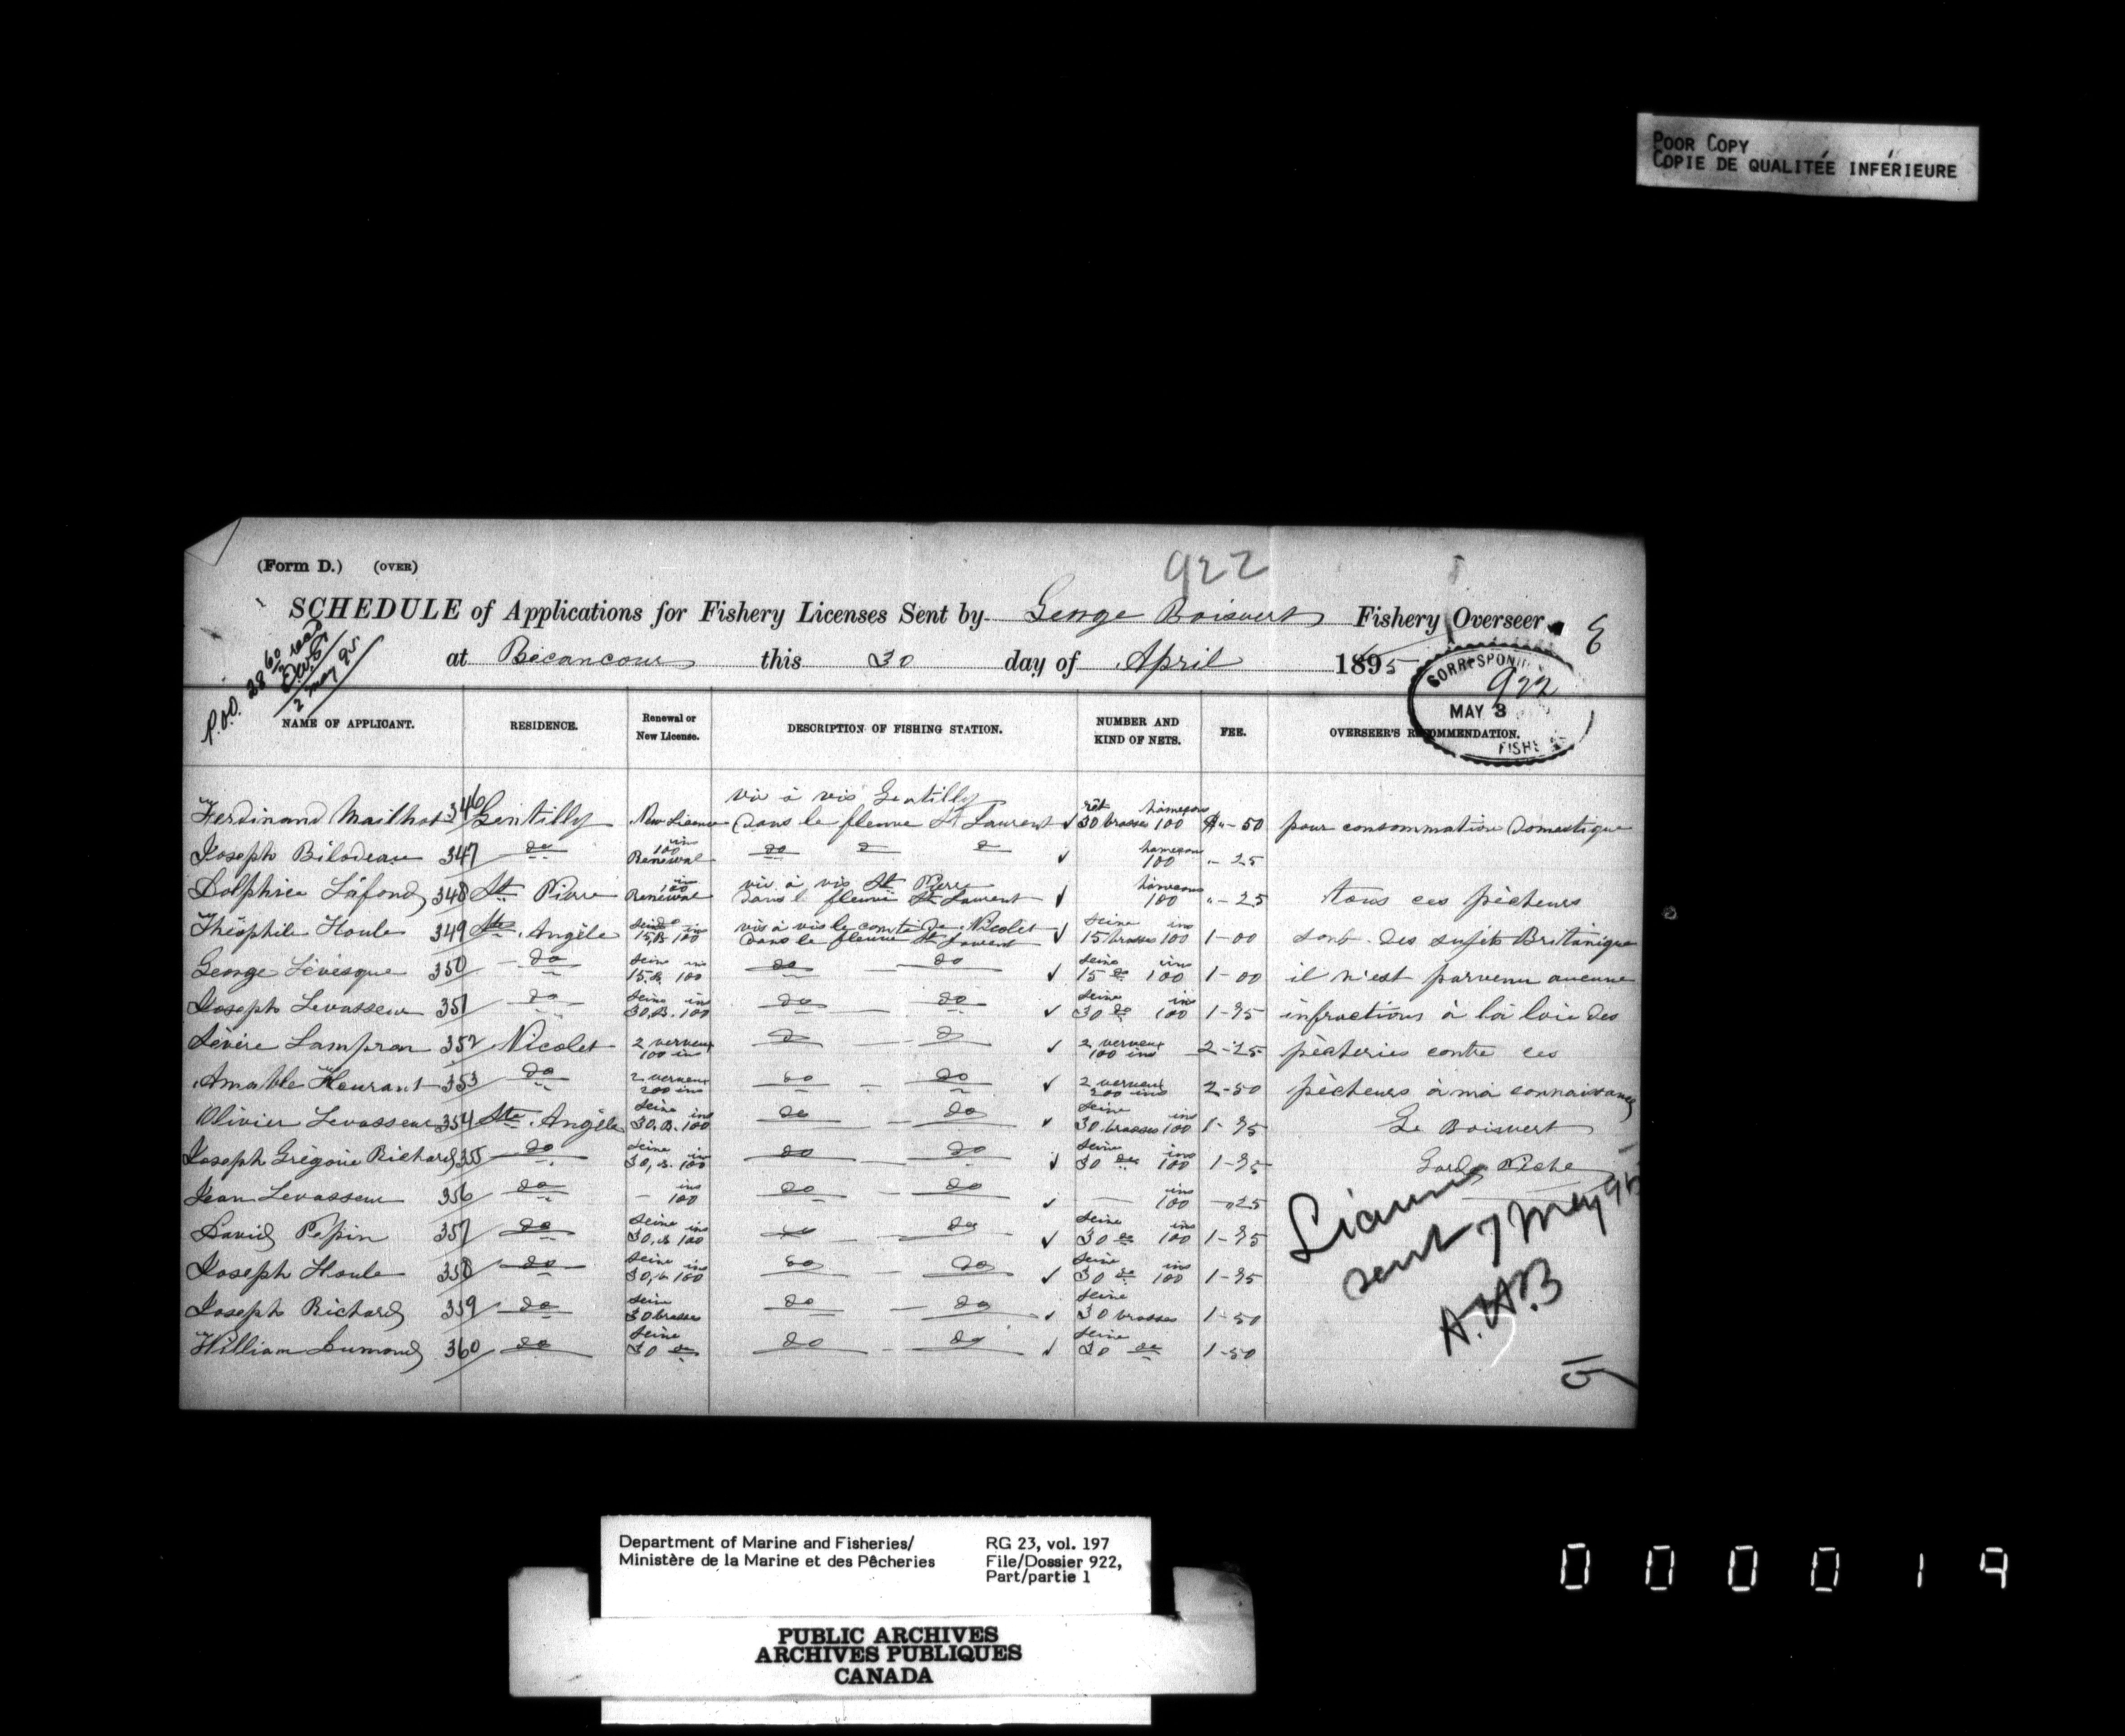 POOR COPY
COPIE DE QUALITÉE INFÉRIEURE
(Form D.) (OVER)
922
SCHEDULE of Applications for Fishery Licenses Sent by George Boisvert Fishery Overseer
at Bécancour this 30 day of April 1895
P.O.O. 28 60
2 May 95
CORRESPON
922
MAY 3
FISHE
NAME OF APPLICANT. RESIDENCE. Renewal or New License. DESCRIPTION OF FISHING STATION. NUMBER AND KIND OF NETS. FEE. OVERSEER'S RECOMMENDATION.
vis à vis Gentilly
Ferdinand Mailhot 346 Gentilly New Licence dans le fleuve St Laurent ✓ rêt 30 brasses hameçons 100 $"-50 pour consommation domestique
Joseph Bilodeau 347 do 100 ins Renewal do do do ✓ hameçons 100 "-25
Dolphice Lafond 348 St Pierre 100 in Renewal vis à vis St Pierre dans l fleuve St Laurent ✓ hameçons 100 "-25 tous ces pêcheurs
Théophile Houle 349 Ste Angèle Seine 15,B. ins 100 vis à vis le comté de Nicolet dans le fleuve St Laurent ✓ seine 15 brasses ins 100 1-00 sont des sujets Britanique
George Lévésque 350 do Seine 15,B. ins 100 do do ✓ seine 15 do ins 100 1-00 il n'est parvenu aucune
Joseph Levasseur 351 do Seine 30,B. ins 100 do do ✓ seine 30 do ins 100 1-75 infractions à la loie des
Sévère Lampron 352 Nicolet 2 verveux 100 ins do do ✓ 2 verveux 100 ins 2-25 pêcheries contre ces
Amable Fleurant 353 do 2 verveux 200 ins do do ✓ 2 verveux 200 ins 2-50 pêcheurs à ma connaissance
Olivier Levasseur 354 Ste Angèle Seine 30,B. ins 100 do do ✓ seine 30 brasses ins 100 1-75 Ge Boisvert
Joseph Grégoire Richard 355 do Seine 30,B. ins 100 do do ✓ seine 30 do ins 100 1-75 Garde Pêche
Jean Levasseur 356 do - ins 100 do do ✓ - ins 100 -"25
David Pepin 357 do Seine 30,B ins 100 do do ✓ seine 30 do ins 100 1-75
Joseph Houle 358 do Seine 30,b ins 100 do do ✓ seine 30 do ins 100 1-75
Joseph Richard 359 do Seine 30 brasses do do ✓ seine 30 brasses 1-50
William Dumond 360 do Seine 30 do do do ✓ seine 30 do 1-50
sent 7 May 95
Department of Marine and Fisheries/
Ministère de la Marine et des Pêcheries
RG 23, vol. 197
File/Dossier 922,
Part/partie 1
PUBLIC ARCHIVES
ARCHIVES PUBLIQUES
CANADA
000019